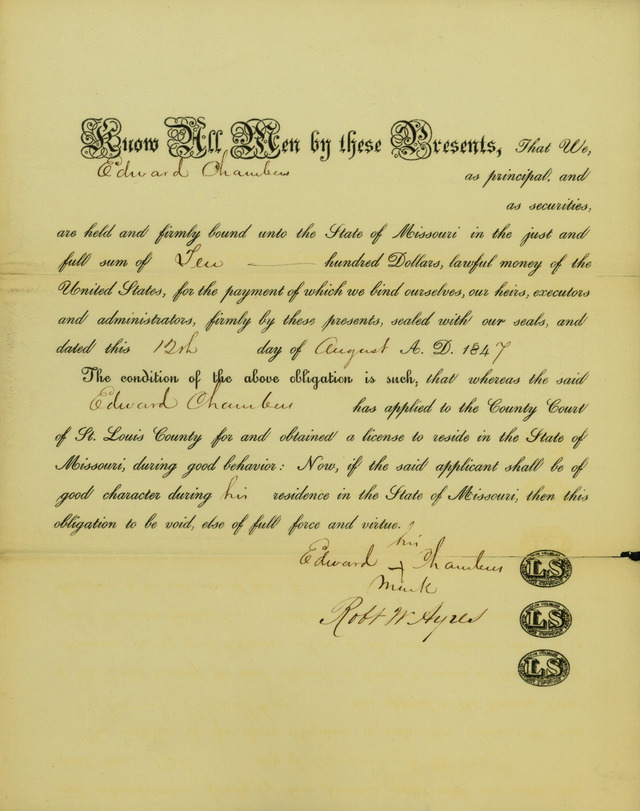 Know All Men by these Presents, That We,
Edward Chambers as principal, and
as securities,
are held and firmly bound unto the State of Missouri in the just and
full sum of Ten hundred Dollars, lawful money of the
United States, for the payment of which we bind ourselves, our heirs, executors
and administrators, firmly by these presents, sealed with our seals, and
dated this 12th day of August A. D. 1847
The condition of the above obligation is such, that whereas the said
Edward Chambers has applied to the County Court
of St. Louis County for and obtained a license to reside in the State of
Missouri, during good behavior: Now, if the said applicant shall be of
good character during his residence in the State of Missouri, then this
obligation to be void, else of full force and virtue.
his
Edward + Chambers LS
mark
Robt W Ayres LS
LS